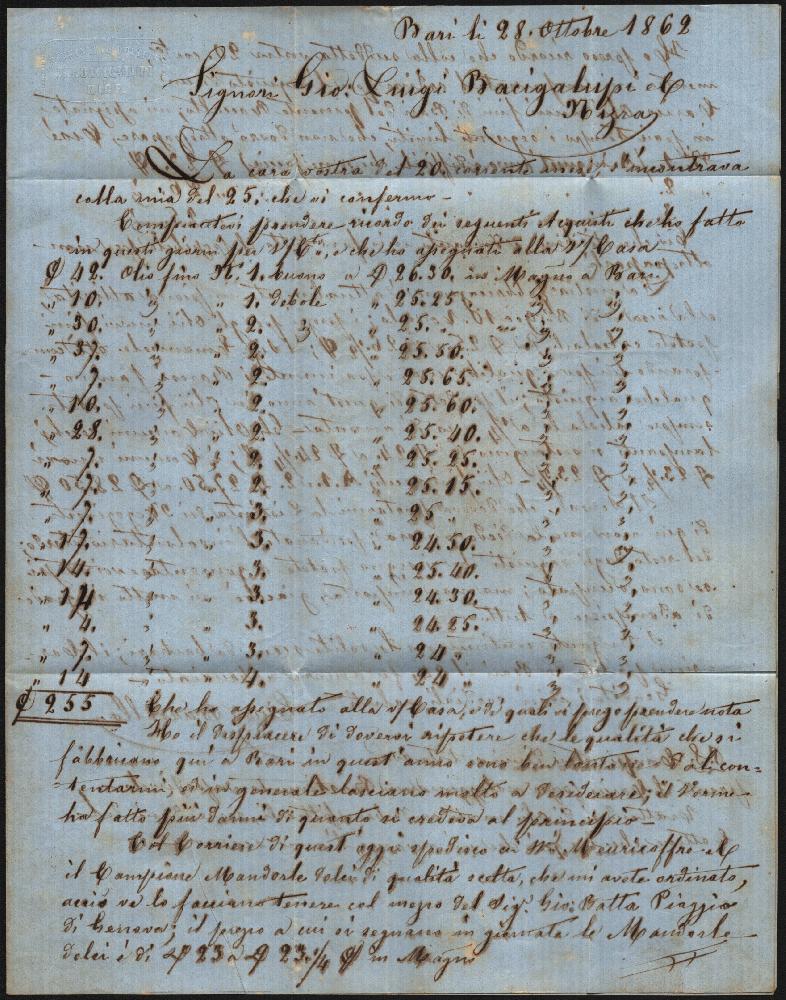 Bari li 28. Ottobre 1862
Signori Gio: Luigi Bacigalupi & C
Nizza
La cara vostra del 20. corrente mese s'incontrava
colla mia del 25. che vi confermo -
Compiacetevi prendere ricordo dei seguenti Acquisti che ho fatto
in questi giorni per V/ Cto, e che ho assegnati alla V/ Casa
42. Olio fino N. 1. buono a 26.30. in Magno a Bari
" 10. " " 1. debole " 25.25. " "
" 30. " " 2. " 25. " " "
" 37. " " 2. " 25.50. " "
" 7. " " 2. " 25.65. " "
" 10. " " 2. " 25.60. " "
" 28. " " 2. " 25.40. " "
" 7. " " 2. " 25.25. " "
" 7. " " 2. " 25.15. " "
" 7. " " 3. " 25 " " "
" 17. " " 3. " 24.50. " "
" 14. " " 3. " 25.40. " "
" 14 " " 3. " 24.30. " "
" 4. " " 3. " 24.25. " "
" 7. " " 3. " 24 " " "
" 14 " " 4. " 24 " " "
255 Che ho assegnato alla v/ Casa, e di quali vi prego prendere nota
Ho il dispiacere di dovervi ripetere che le qualità che si
fabbricano quì a Bari in quest'anno sono ben lontane dal con=
=tentarmi, ed in generale lasciano molto a desiderare; il Verme
ha fatto più danni di quanto si credeva al principio -
Col Corriere di quest'oggi spedisco ai Sri Meuricoffre & C
il Campione Mandorle dolci di qualità scelta, che mi avete ordinato,
acciò ve lo facciano tenere col mezzo del Sig. Gio: Batta Piaggio
di Genova; il prezzo a cui si segnano in giornata le Mandorle
dolci è di 23 a 23 1/4 in Magno